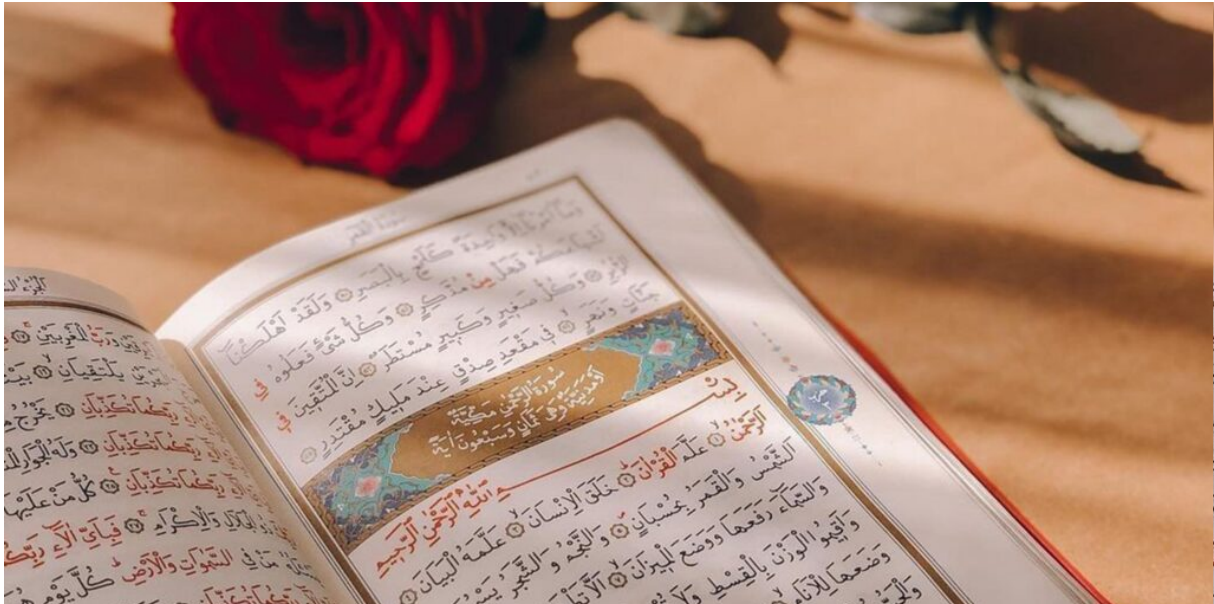 سورة القمر
وَمَٓا اَمْرُنَٓا اِلَّا وَاحِدَةٌ كَلَمْحٍ بِالْبَصَرِ وَلَقَدْ اَهْلَكْنَٓا
اَشْيَاعَكُمْ فَهَلْ مِنْ مُدَّكِرٍ وَكُلُّ شَىْءٍ فَعَلُوهُ فِى
الزُّبُرِ وَكُلُّ صَغٖيرٍ وَكَبٖيرٍ مُسْتَطَرٌ اِنَّ الْمُتَّقٖينَ فٖى
جَنَّاتٍ وَنَهَرٍ فٖى مَقْعَدِ صِدْقٍ عِنْدَ مَلٖيكٍ مُقْتَدِرٍ
سُورَةُ الرَّحْمٰنِ مَكِّيَّةٌ
اَوْ مَدَنِيَّةٌ وَهِىَ ثَمَانٍ وَسَبْعُونَ اٰيَةً
بِسْمِ اللّٰهِ الرَّحْمٰنِ الرَّحٖيمِ
اَلرَّحْمٰنُ عَلَّمَ الْقُرْاٰنَ خَلَقَ الْاِنْسَانَ عَلَّمَهُ الْبَيَانَ
اَلشَّمْسُ وَالْقَمَرُ بِحُسْبَانٍ وَالنَّجْمُ وَالشَّجَرُ
وَالسَّمَٓاءَ رَفَعَهَا وَوَضَعَ الْمٖيزَانَ
وَاَقٖيمُوا الْوَزْنَ بِالْقِسْطِ وَلَا
وَضَعَهَا لِلْاَنَامِ
وَرَبُّ الْمَغْرِبَيْنِ
يَلْتَقِيَانِ
رَبِّكُمَا تُكَذِّبَانِ يَخْرُجُ
رَبِّكُمَا تُكَذِّبَانِ وَلَهُ الْجَوَارِ
رَبِّكُمَا تُكَذِّبَانِ كُلُّ مَنْ عَلَيْهَا
الْجَلَالِ وَالْاِكْرَامِ فَبِاَىِّ اٰلَٓاءِ
مَنْ فِى السَّمٰوَاتِ وَالْاَرْضِ كُلَّ يَوْمٍ